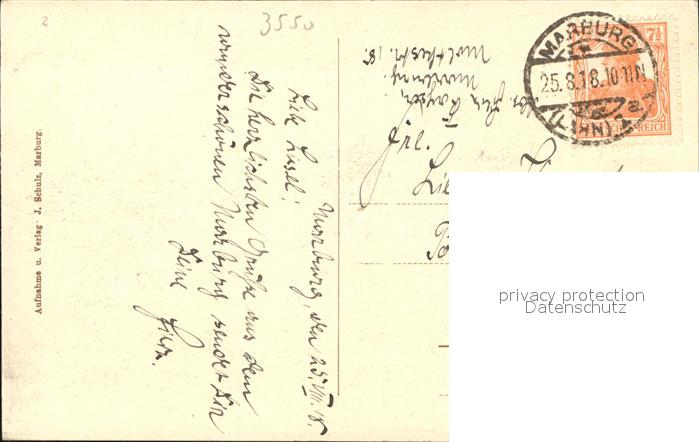 2
3550
Aufnahme u. Verlag J. Schulz, Marburg.
Marburg, den 25. VIII. 18.
Liebe Liesel!
Die herzlichsten Grüße aus dem
wunderschönen Marburg sendet Dir
Deine
MARBURG
25.8.18.10-11N
(LAHN)
7½
REICH
Marburg
Frl.
privacy protection
Datenschutz